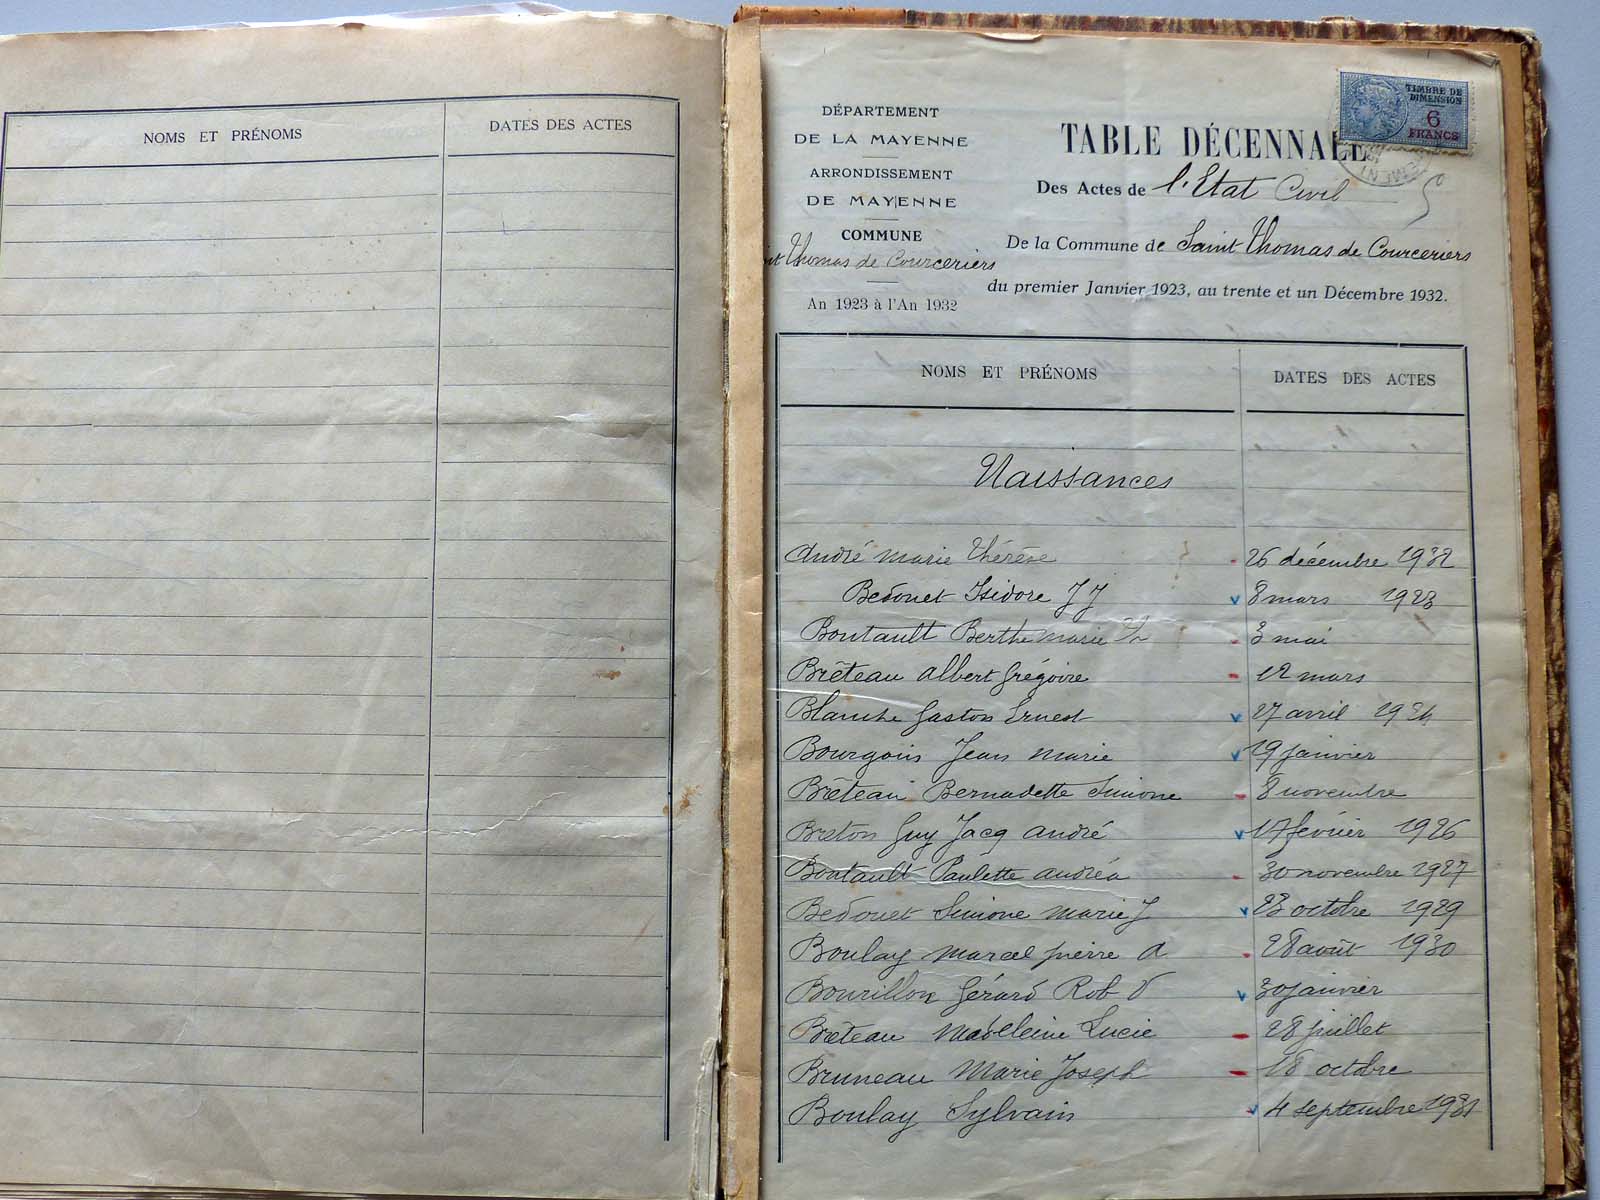 NOMS ET PRÉNOMS
DATES DES ACTES
DÉPARTEMENT
DE LA MAYENNE
ARRONDISSEMENT
DE MAYENNE
COMMUNE
Thomas de Courceriers
An 1923 à l'An 1932
TIMBRE DE
DIMENSION
6
FRANCS
TABLE DÉCENNALE
Des Actes de l'Etat Civil
De la Commune de Saint Thomas de Courceriers
du premier Janvier 1923, au trente et un Décembre 1932.
NOMS ET PRÉNOMS
DATES DES ACTES
Naissances
André marie Thérèse 26 décembre 1932
Bedouet Isidore J J 8 mars 1923
Boutault Berthe marie Th 3 mai
Brêteau albert Grégoire 12 mars
Blanche Gaston Ernest 27 avril 1924
Bourgoin Jean marie 19 janvier
Brêteau Bernadette Simone 8 novembre
Breton Guy Jacq andré 17 février 1926
Boutault Paulette andréa 30 novembre 1927
Bedouet Simone marie J 23 octobre 1929
Boulay Marcel pierre A 28 août 1930
Bourillon Gérard Rob V 30 janvier
Brêteau Madeleine Lucie 28 juillet
Bruneau Marie Joseph 18 octobre
Boulay Sylvain 4 septembre 1931